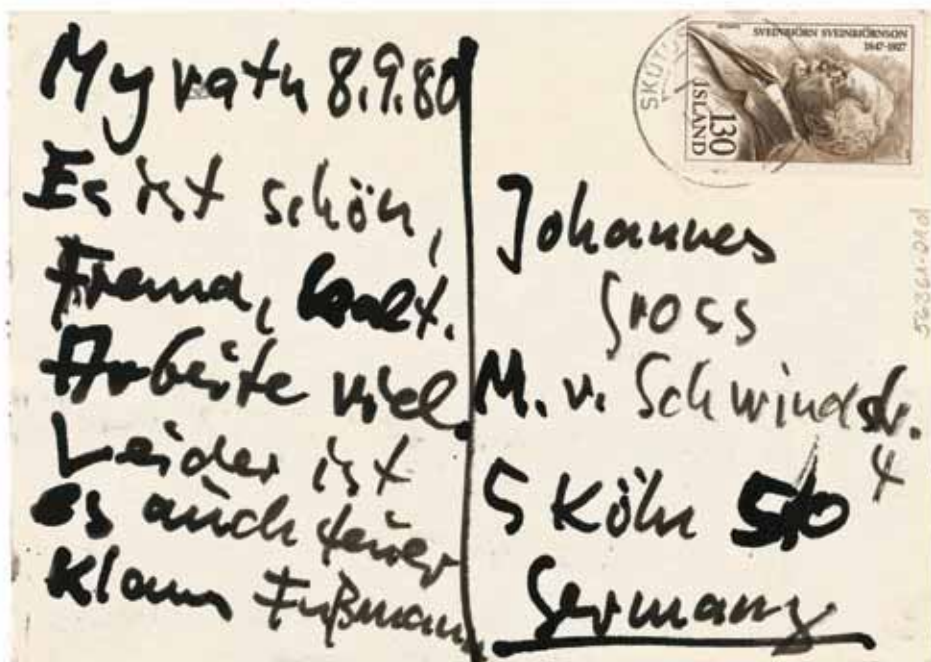 Myvatn 8.9.80
Es ist schön,
Fremd, kalt.
Arbeite viel.
Leider ist
es auch teuer
Klaus Fußmann
SKUTUS
SVEINBJÖRN SVEINBJÖRNSON
1847-1927
130
ÍSLAND
Johannes
Gross
M. v. Schwindstr.
4
5 Köln 50
Germany